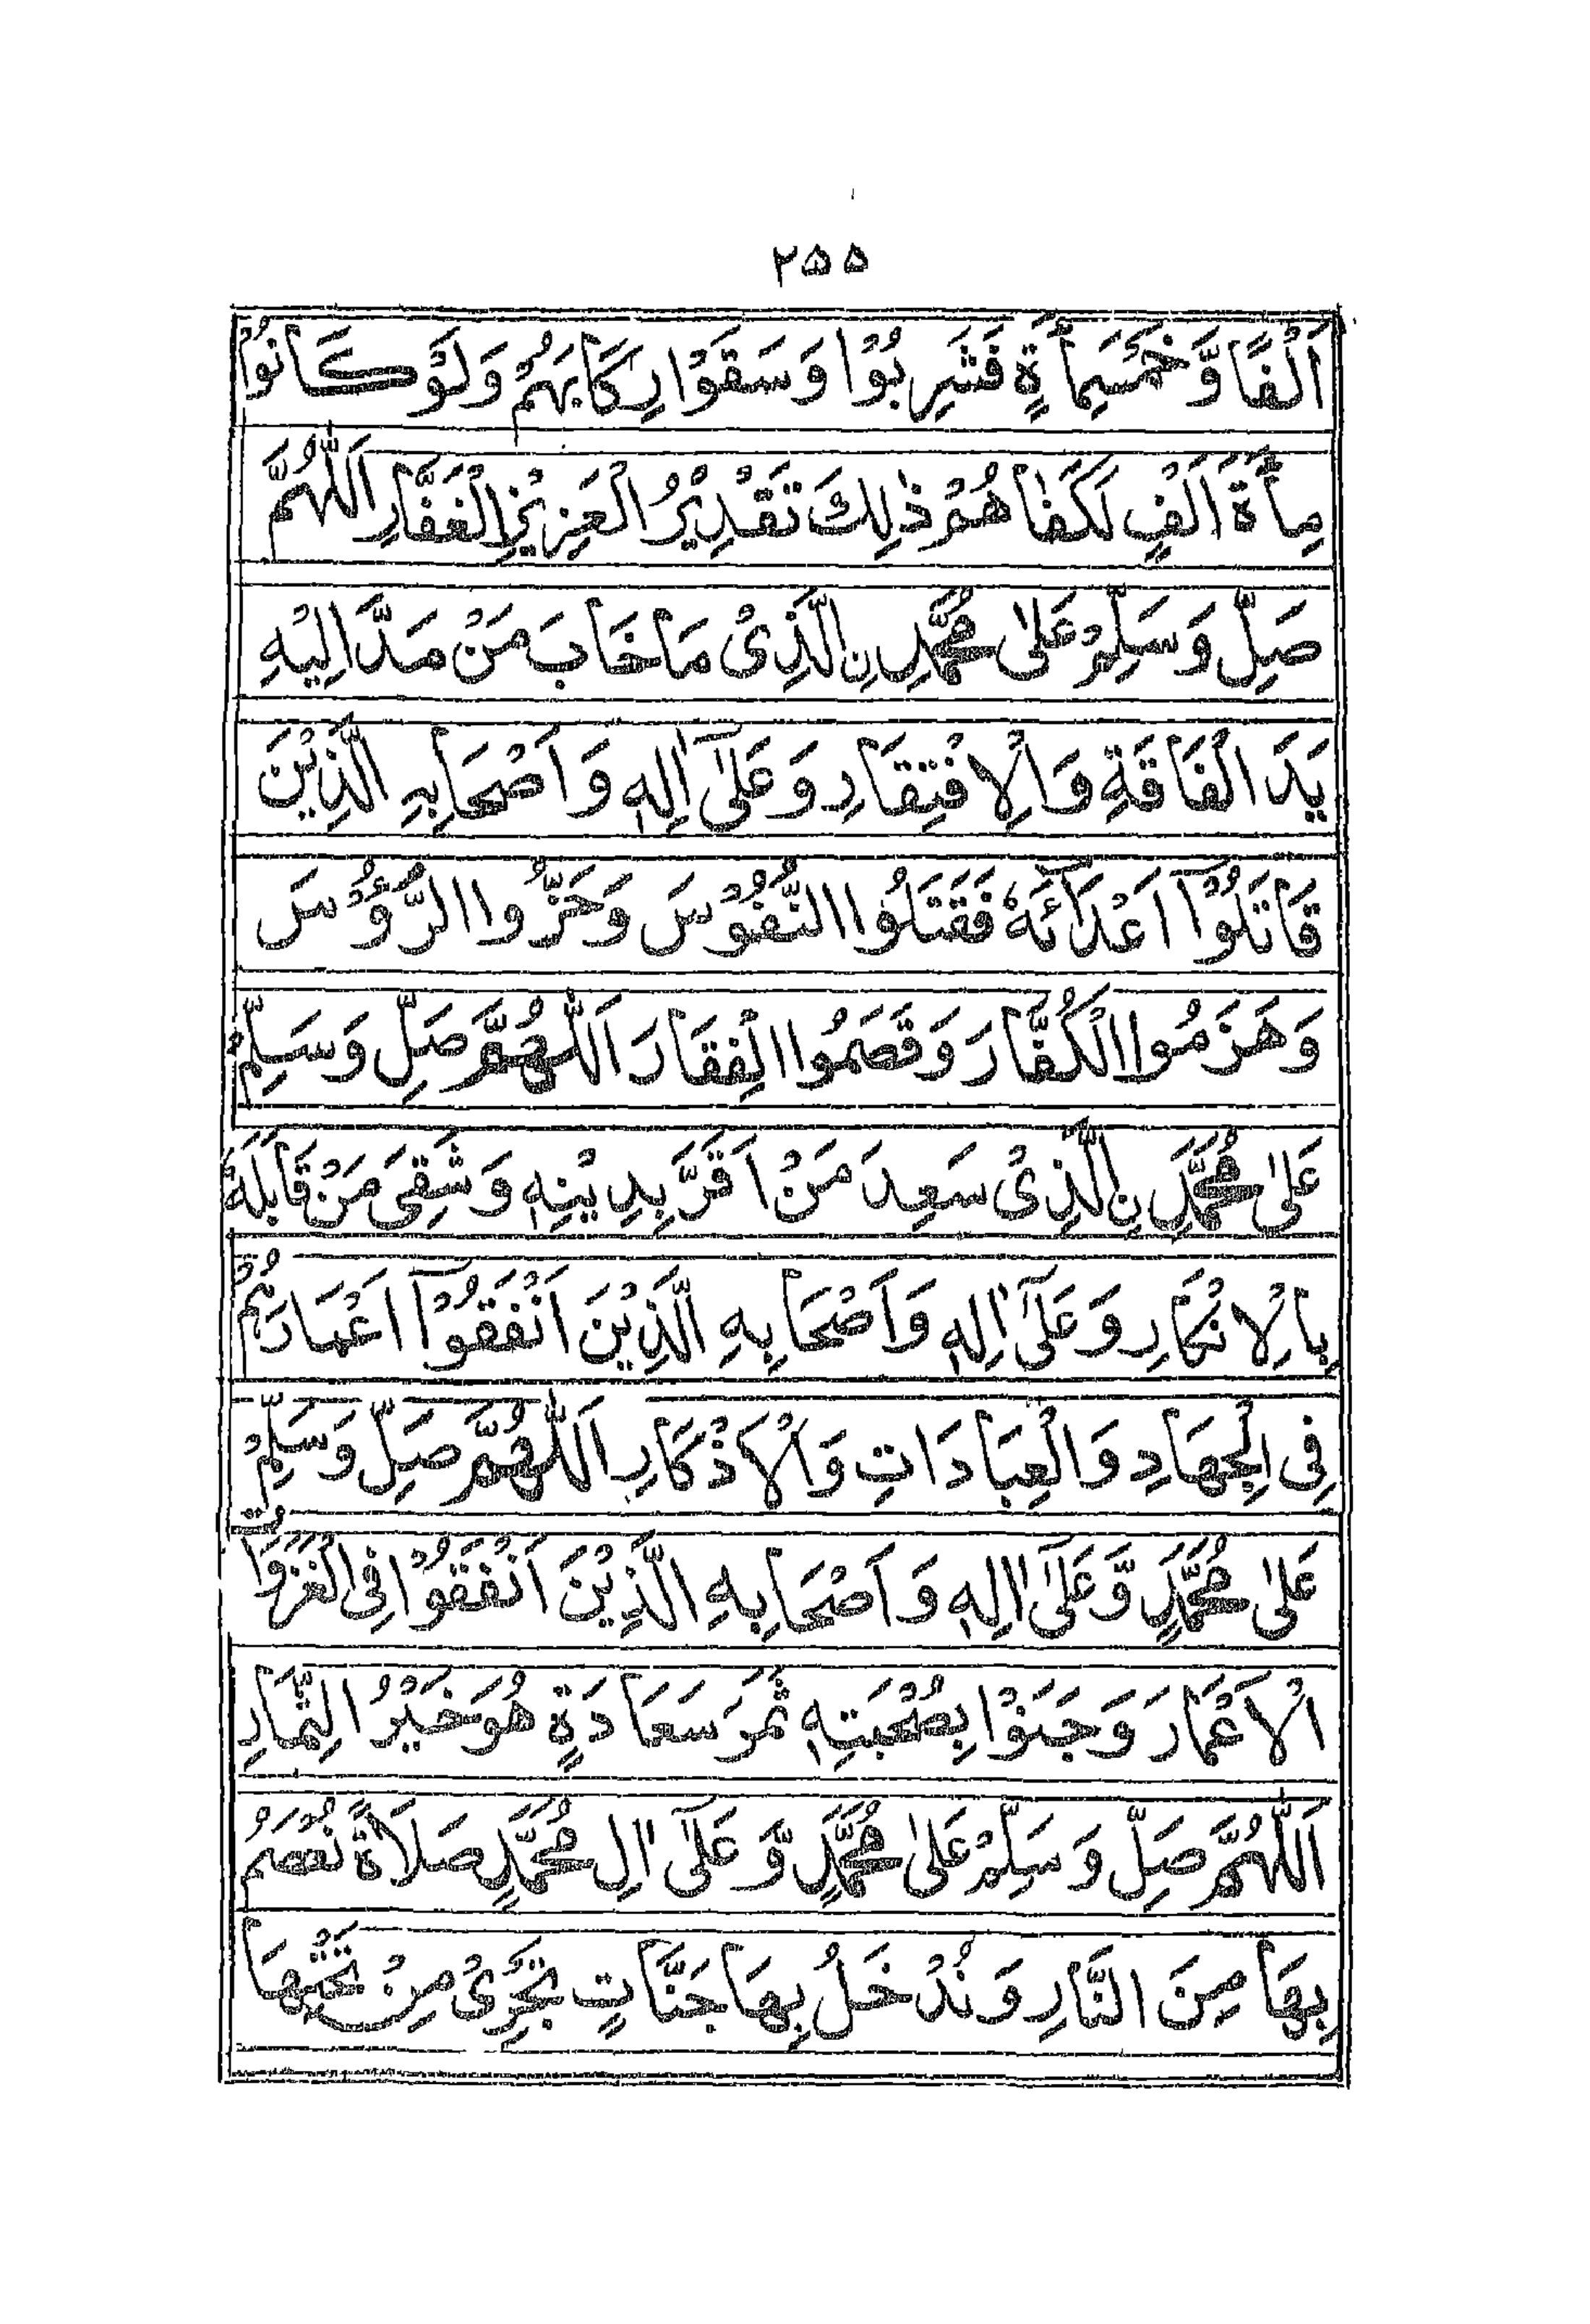 ۲۵۵
اَلْفًا وَّخَمْسَمِأَةٍ فَشَرِبُوْا وَسَقَوْا رِكَابَهُمْ وَلَوْ كَانُوْا
مِأَةَ اَلْفٍ لَكَفَاهُمْ ذٰلِكَ تَقْدِيْرُ الْعَزِيْزِ الْغَفَّارِ اَللّٰهُمَّ
صَلِّ وَسَلِّمْ عَلٰى مُحَمَّدِنِ الَّذِىْ مَا خَابَ مَنْ مَدَّ اِلَيْهِ
يَدَ الْفَاقَةِ وَالْاِفْتِقَارِ وَعَلٰۤى اٰلِهٖ وَاَصْحَابِهِ الَّذِيْنَ
قَاتَلُوْۤا اَعْدَآئَهٗ فَقَتَلُوا النُّفُوْسَ وَحَزُّوا الرُّؤُوْسَ
وَهَزَمُوا الْكُفَّارَ وَقَصَمُوا الْفِقَارَ اَللّٰهُمَّ صَلِّ وَسَلِّمْ
عَلٰى مُحَمَّدِنِ الَّذِىْ سَعِدَ مَنْ اَقَرَّ بِدِيْنِهٖ وَشَقِىَ مَنْ قَابَلَهٗ
بِالْاِنْكَارِ وَعَلٰۤى اٰلِهٖ وَاَصْحَابِهِ الَّذِيْنَ اَنْفَقُوْۤا اَعْمَارَهُمْ
فِى الْجِهَادِ وَالْعِبَادَاتِ وَالْاَذْكَارِ اَللّٰهُمَّ صَلِّ وَسَلِّمْ
عَلٰى مُحَمَّدٍ وَّعَلٰۤى اٰلِهٖ وَاَصْحَابِهِ الَّذِيْنَ اَنْفَقُوْا فِى الْغَزَوَاتِ
الْاَعْمَارَ وَجَنَوْا بِصُحْبَتِهٖ ثَمَرَ سَعَادَةٍ هُوَ خَيْرُ الثِّمَارِ
اَللّٰهُمَّ صَلِّ وَسَلِّمْ عَلٰى مُحَمَّدٍ وَّعَلٰۤى اٰلِ مُحَمَّدٍ صَلَاةً نُعْصَمُ
بِهَا مِنَ النَّارِ وَنُدْخَلُ بِهَا جَنَّاتٍ تَجْرِىْ مِنْ تَحْتِهَا